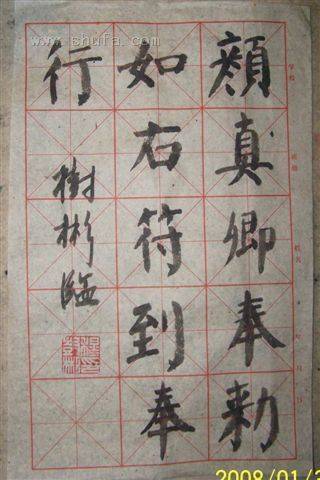 顔真卿奉勅
如右符到奉
行
樹彬臨
www.shufa.com
2008/01/